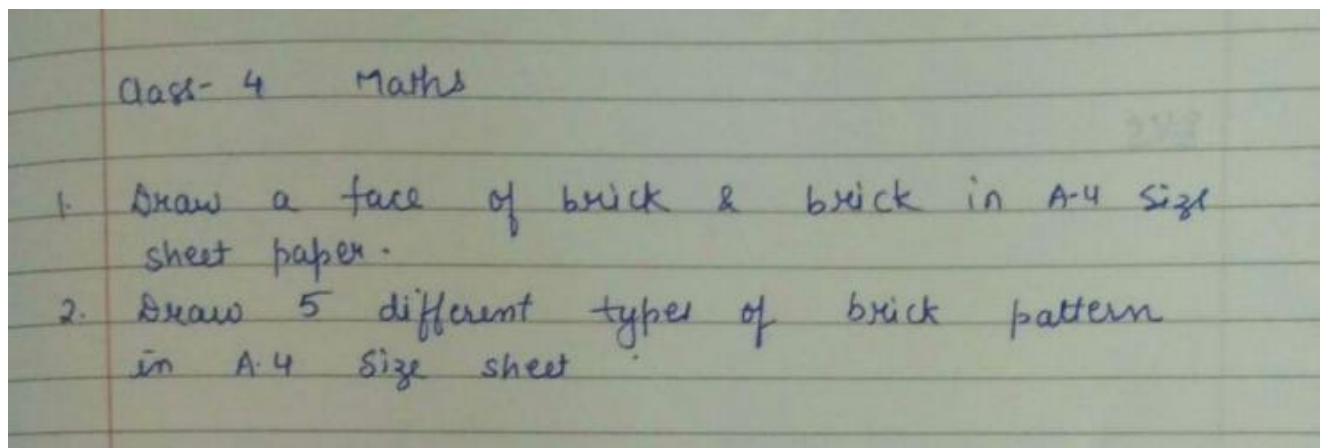 Class- 4 Maths
1. Draw a face of brick & brick in A-4 Size
sheet paper.
2. Draw 5 different types of brick pattern
in A.4 Size sheet